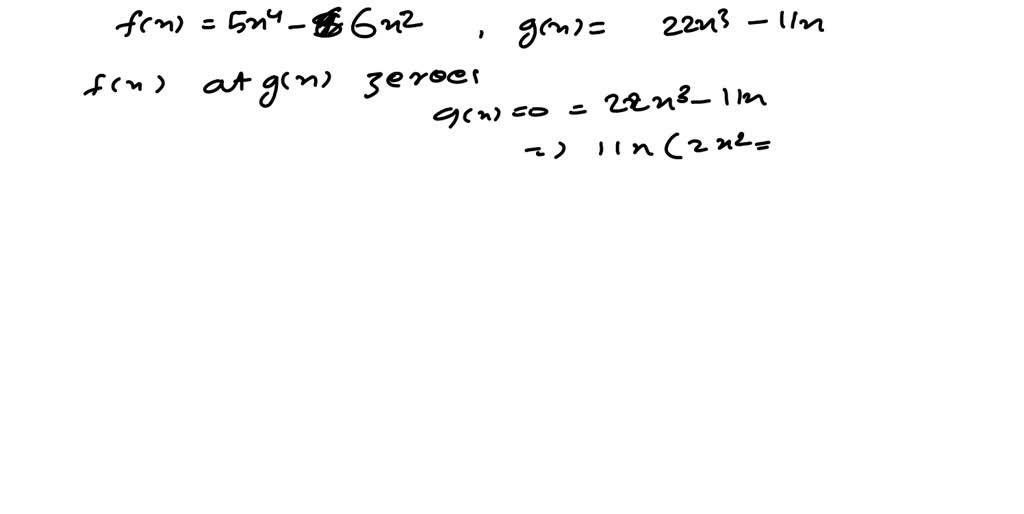 f(x) = 5x⁴ - 6x² , g(x) = 22x³ - 11x
f(x) at g(x) zeroes
g(x) = 0 = 22x³ - 11x
=> 11x (2x² =